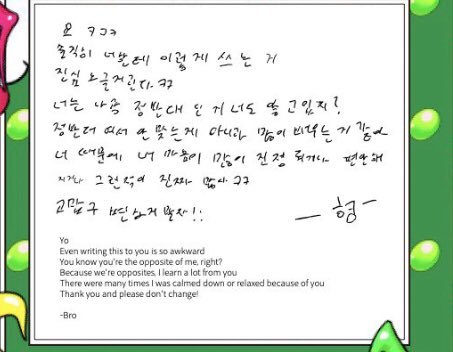 요 ㅋㅋㅋ
솔직히 너한테 이렇게 쓰는 게
진심 오글거린다.ㅋㅋ
너는 나랑 정반대 인 거 너도 알고있지?
정반대 여서 안 맞는게 아니라 많이 배우는 거 같애
너 때문에 내 마음이 많이 진정 되거나 편안해
지거나 그런적이 진짜 많아 ㅋㅋ
고맙구 변하지 말자!!
— 형 —
Yo
Even writing this to you is so awkward
You know you're the opposite of me, right?
Because we're opposites, I learn a lot from you
There were many times I was calmed down or relaxed because of you
Thank you and please don't change!
-Bro